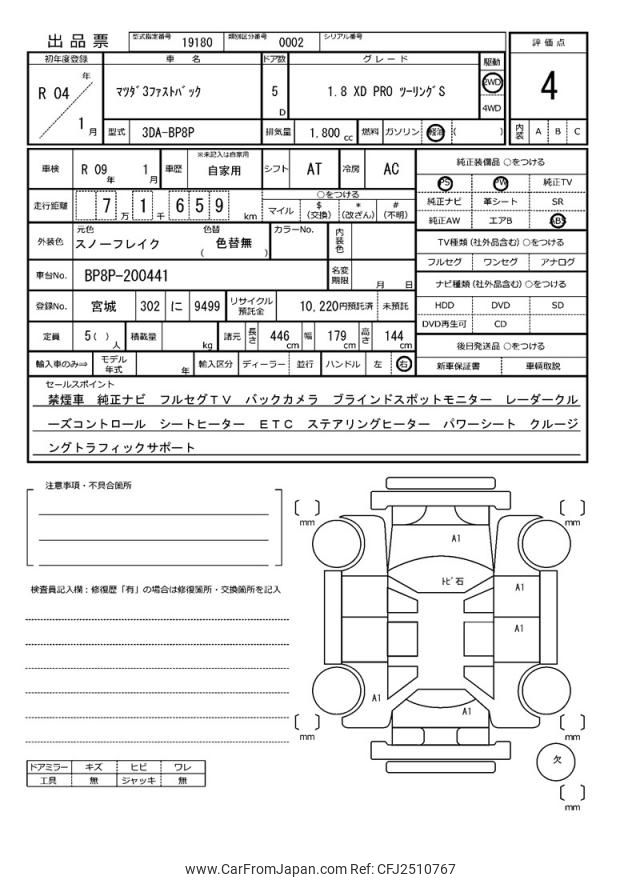 出品票 型式指定番号 19180 類別区分番号 0002 シリアル番号
初年度登録 車名 ドア数 グレード 駆動 評価点
R 04 年 1 月 マツダ3ファストバック 5 D 1.8 XD PRO ツーリングS 2WD 4WD 4
型式 3DA-BP8P 排気量 1,800 cc 燃料 ガソリン 軽油 ( ) 内装 A B C
車検 R 09 年 1 月 車歴 ※未記入は自家用 自家用 シフト AT 冷房 AC 純正装備品 ○をつける
PS PW 純正TV
走行距離 7 万 1 千 6 5 9 km ○をつける 純正ナビ 革シート SR
マイル $ (交換) * (改ざん) # (不明) 純正AW エアB ABS
外装色 元色 スノーフレイク 色替 ( 色替無 ) カラーNo. 内装色 TV種類 (社外品含む) ○をつける
フルセグ ワンセグ アナログ
車台No. BP8P-200441 名変期限 月 日 ナビ種類 (社外品含む) ○をつける
登録No. 宮城 302 に 9499 リサイクル預託金 10,220円預託済 未預託 HDD DVD SD
DVD再生可 CD
定員 5( ) 人 積載量 kg 諸元 長さ 446 cm 幅 179 cm 高さ 144 cm 後日発送品 ○をつける
輸入車のみ⇒ モデル年式 年 輸入区分 ディーラー 並行 ハンドル 左 右 新車保証書 車輌取説
セールスポイント
禁煙車 純正ナビ フルセグTV バックカメラ ブラインドスポットモニター レーダークル
ーズコントロール シートヒーター ETC ステアリングヒーター パワーシート クルージ
ングトラフィックサポート
注意事項・不具合箇所
検査員記入欄：修復歴「有」の場合は修復箇所・交換箇所を記入
mm mm
A1
トビ石
A1
A1
A1
A1
mm mm
欠
mm
ドアミラー キズ ヒビ ワレ
工具 無 ジャッキ 無
www.CarFromJapan.com Ref: CFJ2510767